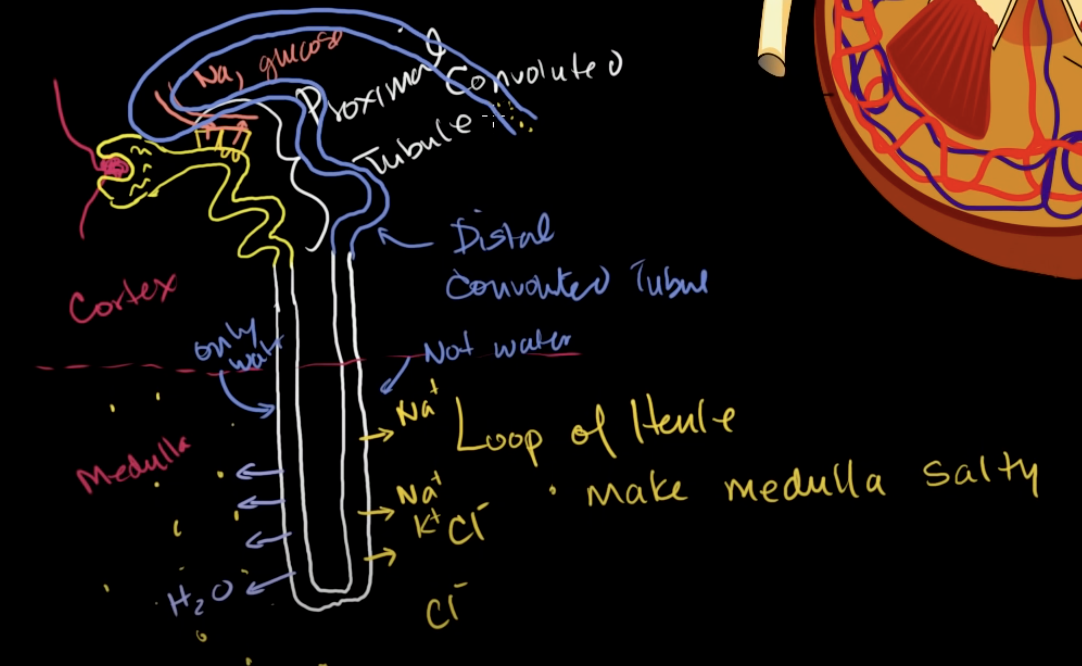 Na, glucose
Proximal
Convoluted
Tubule
Distal
Convoluted Tubule
Cortex
only
water
Not water
Na+
Loop of Henle
Medulla
· Make medulla salty
Na+
K+ Cl-
H2O
Cl-